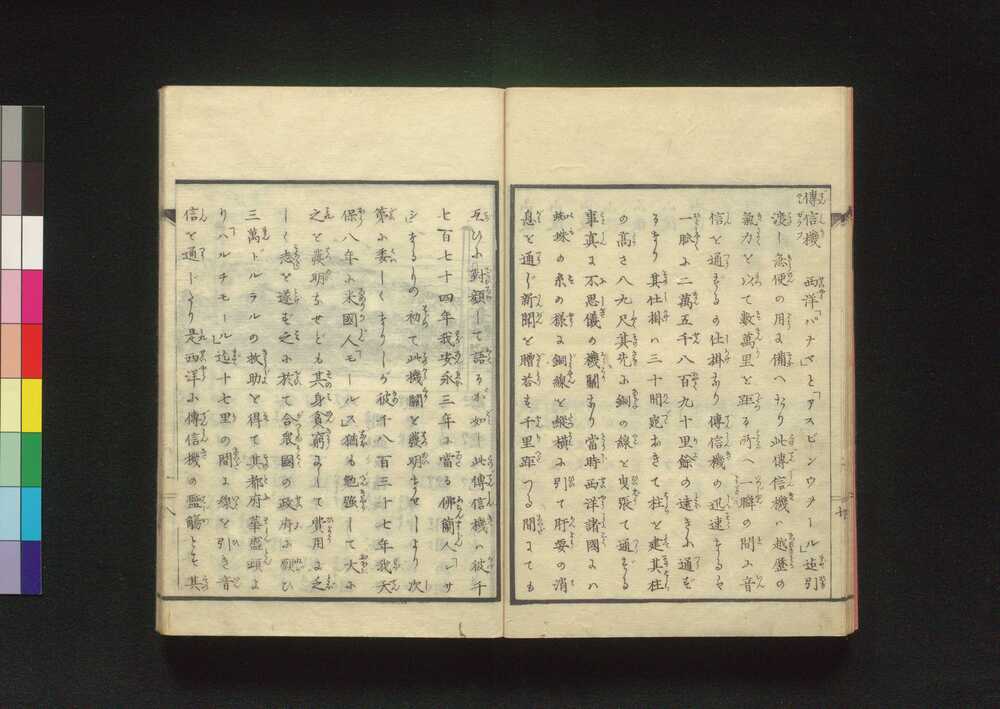 傳信機 西洋「パナマ」と「アスピンウヲール」迄引
渡し急便の用に備へたり此傳信機ハ越歴の
氣力を以て數萬里を距る所へ一瞬の間に音
信を通ずるの仕掛あり傳信機の迅速なるや
一脈に二萬五千八百九十里餘の遠きに通ず
るなり其仕掛ハ三十間宛おきて柱を建其柱
の高さ八九尺其先に銅の線を曳張て通ずる
事真に不思儀の機關なり當時西洋諸國にハ
蜘蛛の糸の様に銅線を縦横に引て肝要の消
息を通じ新聞を贈答す千里距つる間にても
互ひに對顔して語るが如し此傳信機ハ彼千
七百七十四年我安永三年に當る佛蘭人「レサ
シ」なるもの初て此機關を發明なせしより次
第に委しくなりしが彼千八百三十七年我天
保八年に米國人「モールス」猶も勉強して大に
之を發明なせども其身貧窮にして費用に乏
しく志を遂ず之に於て合衆國の政府に願ひ
三萬トルラルの救助を得て其都府華盛頓よ
り「ハルチモール」迄十七里の間に線を引き音
信を通じたり是西洋に傳信機の濫觴とす其